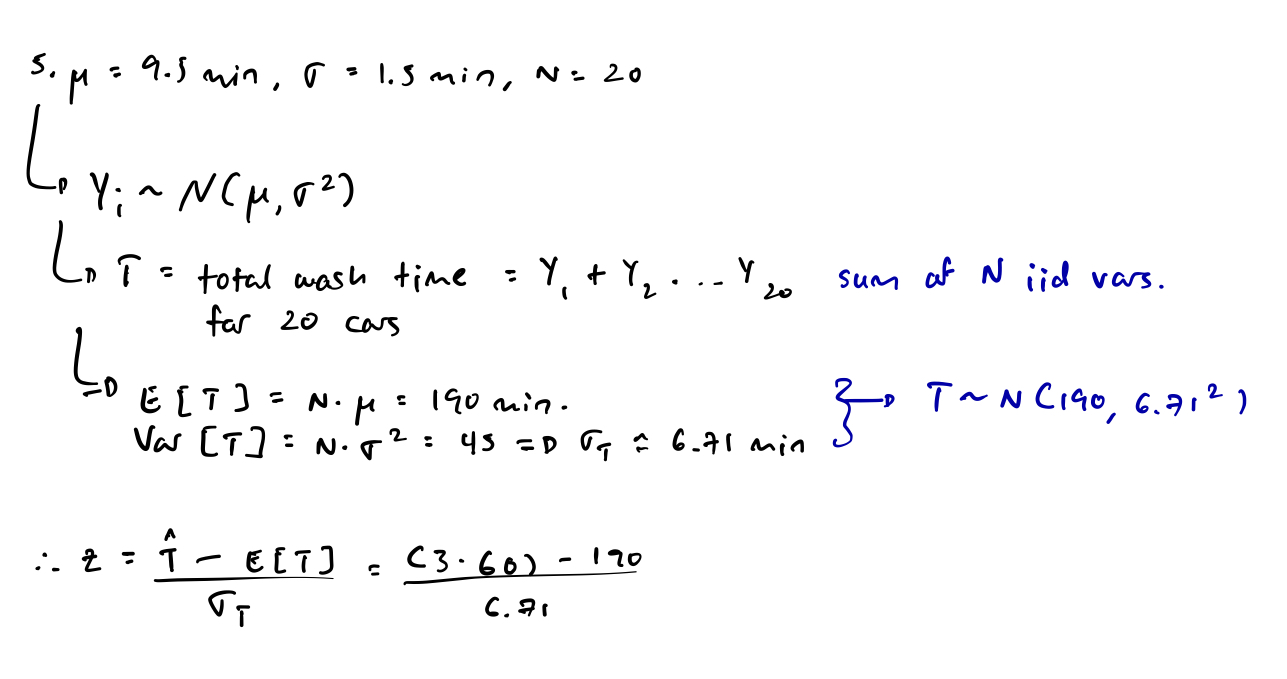 5. μ = 9.5 min, σ = 1.5 min, N = 20
Yᵢ ~ N(μ, σ²)
T = total wash time = Y₁ + Y₂ . ... Y₂₀ sum of N iid vars.
for 20 cars
E[T] = N · μ = 190 min.
Var [T] = N · σ² = 45 => σ_T ≈ 6.71 min
T ~ N(190, 6.71²)
∴ z = (T̂ − E[T]) / σ_T = ((3·60) − 190) / 6.71